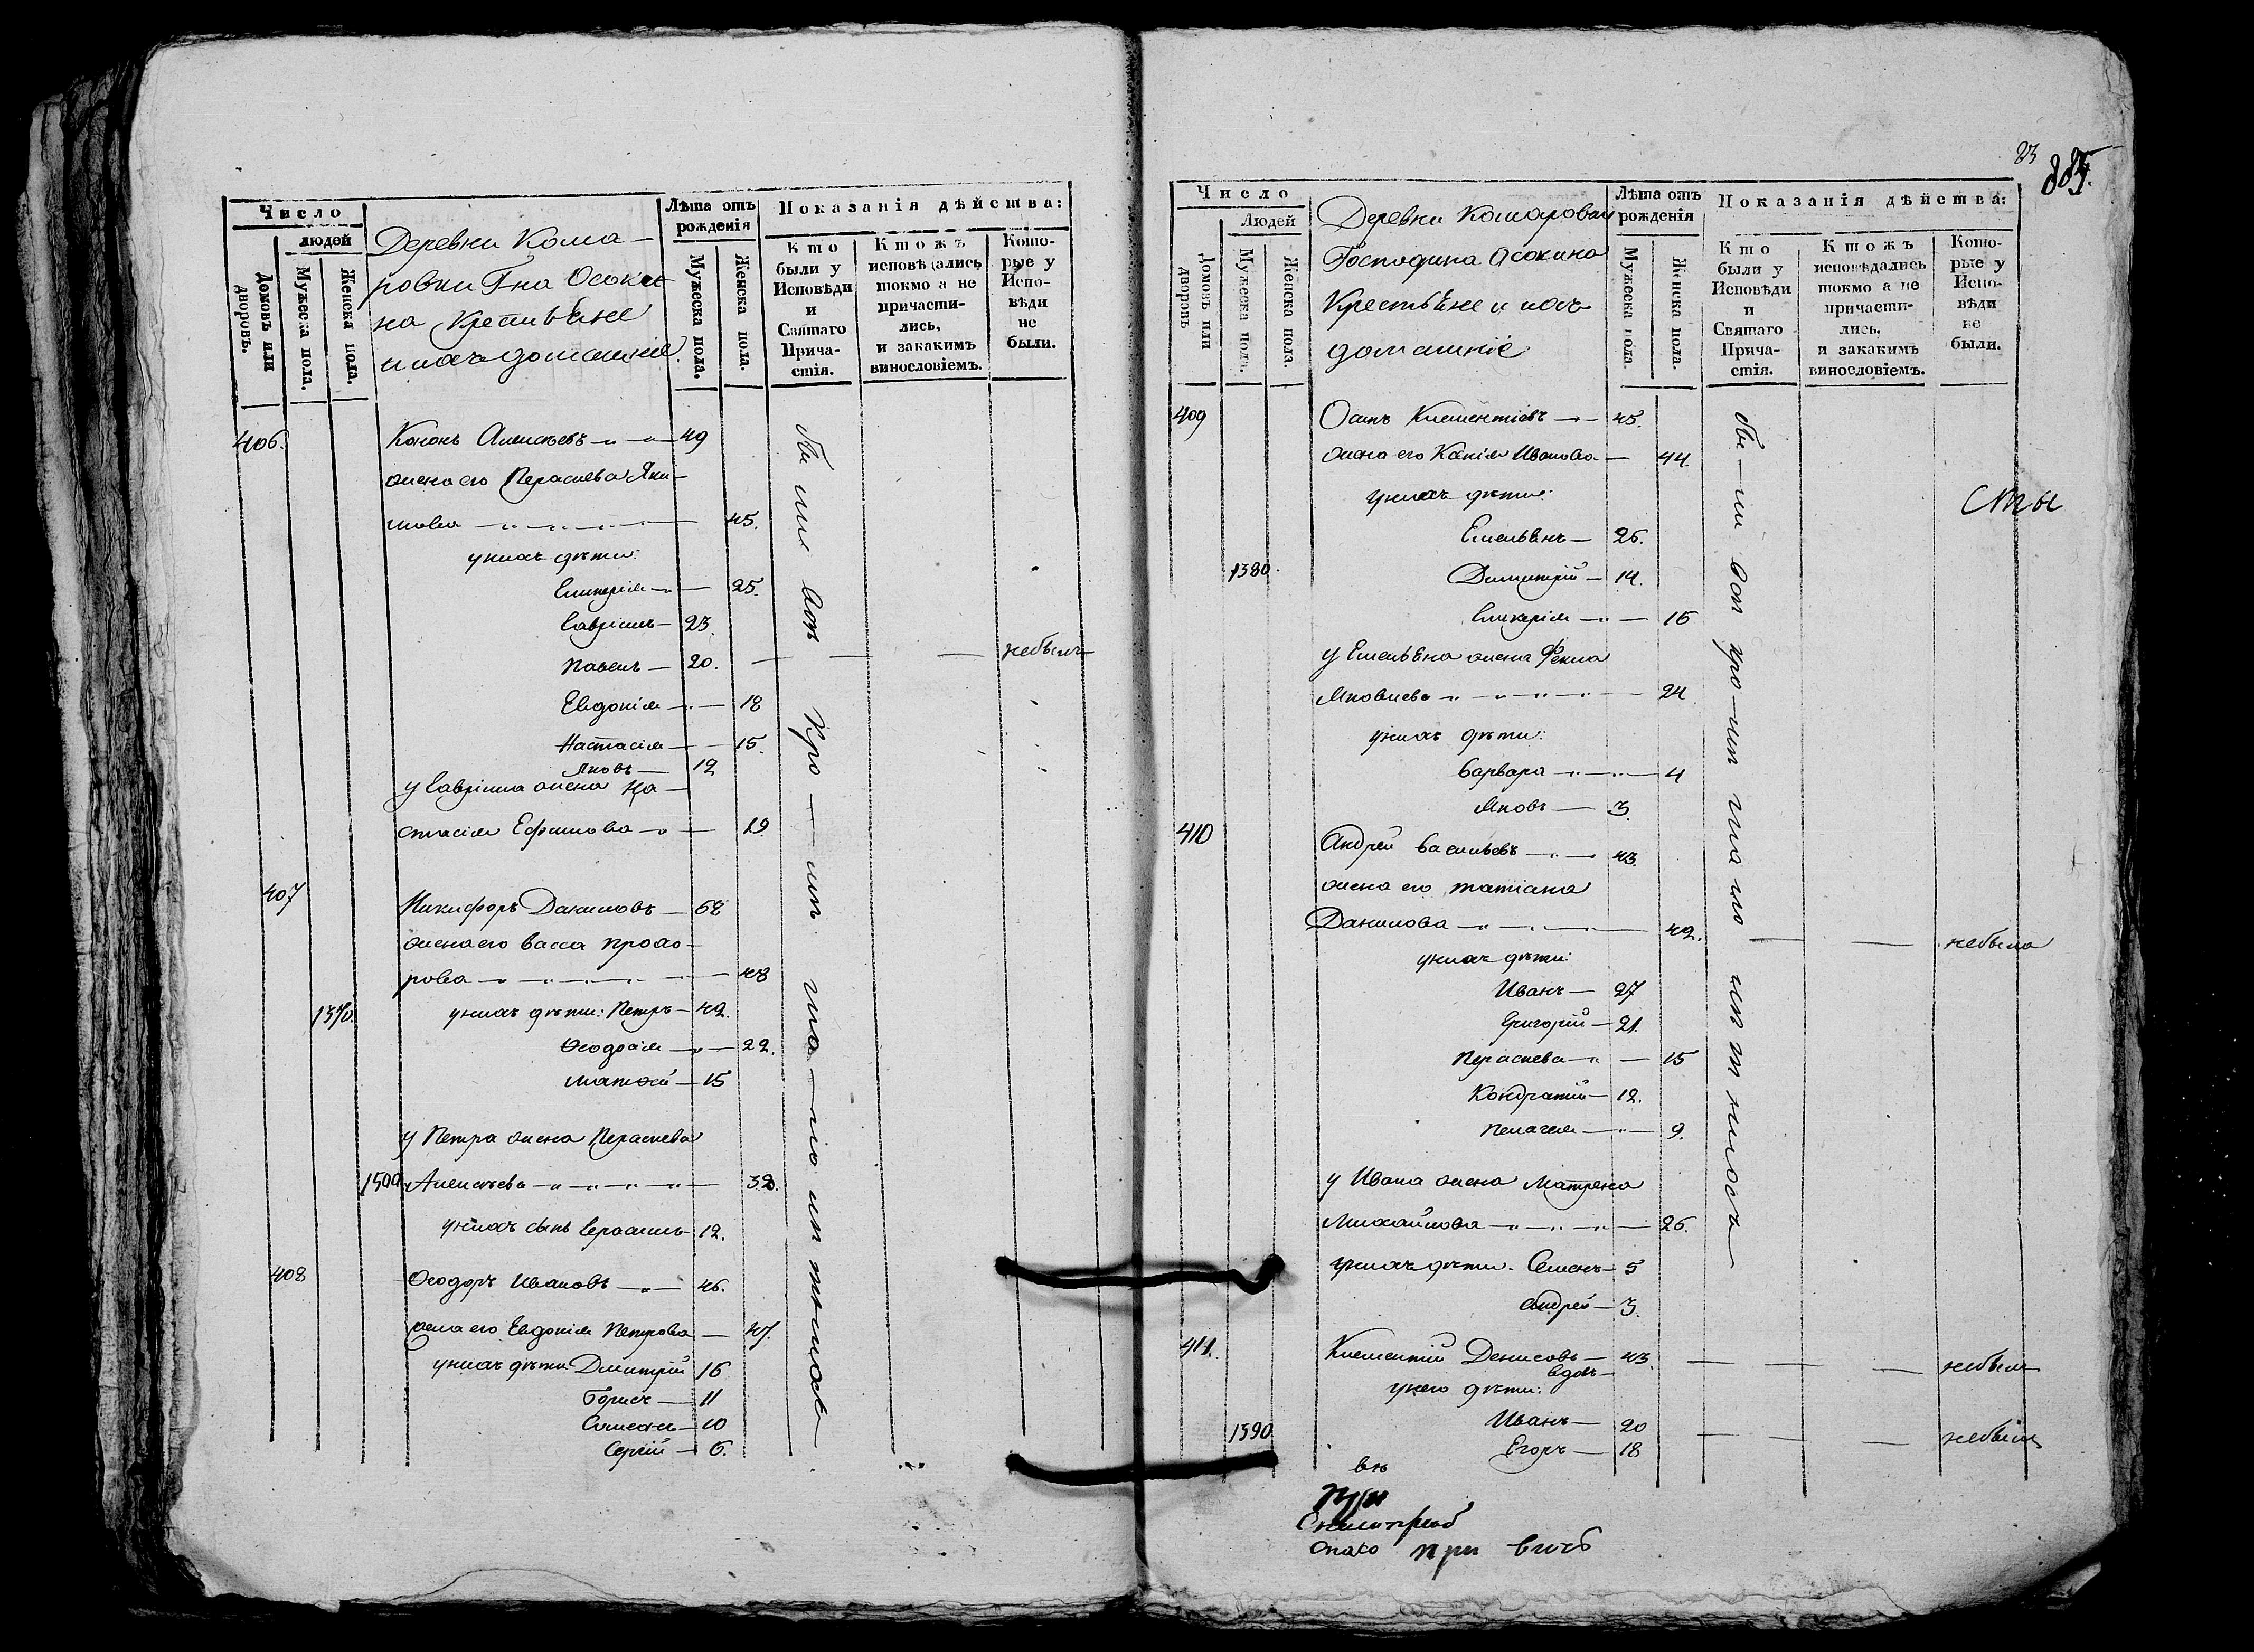 Число
людей
Домовъ или дворовъ.
Мужеска пола.
Женска пола.
Деревни Кома-
ровки Гна Осоки-
на крестьѣне
и ихъ домашніе
Лѣта отъ рожденія
Мужеска пола.
Женска пола.
Показанія дѣйства:
Кто были у Исповѣди и Святаго Прича- стія.
Ктожъ исповѣдались токмо а не причасти- лись, и закакимъ винословіемъ.
Кото- рые у Испо- вѣди не были.
406. Кононъ Алексѣевъ 49
жена его Пераскева Яки-
мова 45.
у нихъ дѣти:
Гликерія 25.
Гаврiилъ 23.
Павелъ 20. небылъ
Евдокія 18
Настасія 15.
Яковъ 12
у Гавріила жена На-
стасія Ефимова 19
407 Никифоръ Даниловъ 68
жена его Васса Прохо-
рова 48
1370. у нихъ дѣти: Петръ 42.
Ѳеодосія 22.
Матвей 15
у Петра жена Пераскева
Алексѣева 38.
у нихъ сынъ Герасимъ 12.
408 Ѳеодоръ Ивановъ 46.
жена его Евдокія Петрова 47.
у нихъ дѣти: Дмитрій 16
Борисъ 11
Симеонъ 10
Сергій 6.
23
Число
Людей
Домовъ или дворовъ
Мужеска пола.
Женска пола.
Деревни Комаровки
Господина Асокина
Крестьѣне и ихъ
домашніе
Лѣта отъ рожденія
Мужеска пола.
Женска пола.
Показанія дѣйства:
Кто были у Исповѣди и Святаго Прича- стія.
Ктожъ исповѣдались токмо а не причасти- лись. и закакимъ винословіемъ.
Кото- рые у Испо- вѣди не были.
409 Осипъ Клементіевъ 45.
жена его Ксенія Иванова 44.
у нихъ дѣти:
Емельѣнъ 26.
1380. Димитрій 14.
Гликерія 16
у Емельѣна жена Фекла
Яковлева 24
у нихъ дѣти:
Варвара 4
Яковъ 3.
410 Андрей Васильевъ 43.
жена его Татіана
Данилова 42. небыла
у нихъ дѣти:
Иванъ 27
Григорій 21.
Пераскева 15
Кондратій 12.
Пелагея 9.
у Ивана жена Матрена
Михайлова 26.
у нихъ дѣти: Семенъ 5
Андрей 3.
411. Клементій Денисовъ 43. небылъ
вдовъ
у него дѣти:
Иванъ 20
1390 Егоръ 18 небылъ